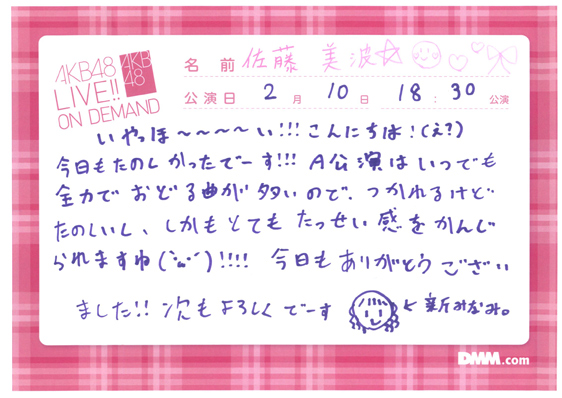 AKB48
LIVE!!
ON DEMAND
AKB
48
名前 佐藤 美波☆
公演日 2月 10日 18:30公演
いやっほ〜〜〜〜い!!! こんにちは!(え?)
今日もたのしかったでーす!!! A公演はいつでも
全力でおどる曲が多いので、つかれるけど
たのしいし、しかもとてもたっせい感をかんじ
られますね(`ω´)!!!! 今日もありがとうござい
ました!! 次もよろしくでーす ←新みなみ。
DMM.com